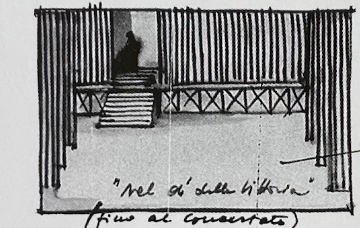 "nel dì della vittoria"
(fino al concertato)